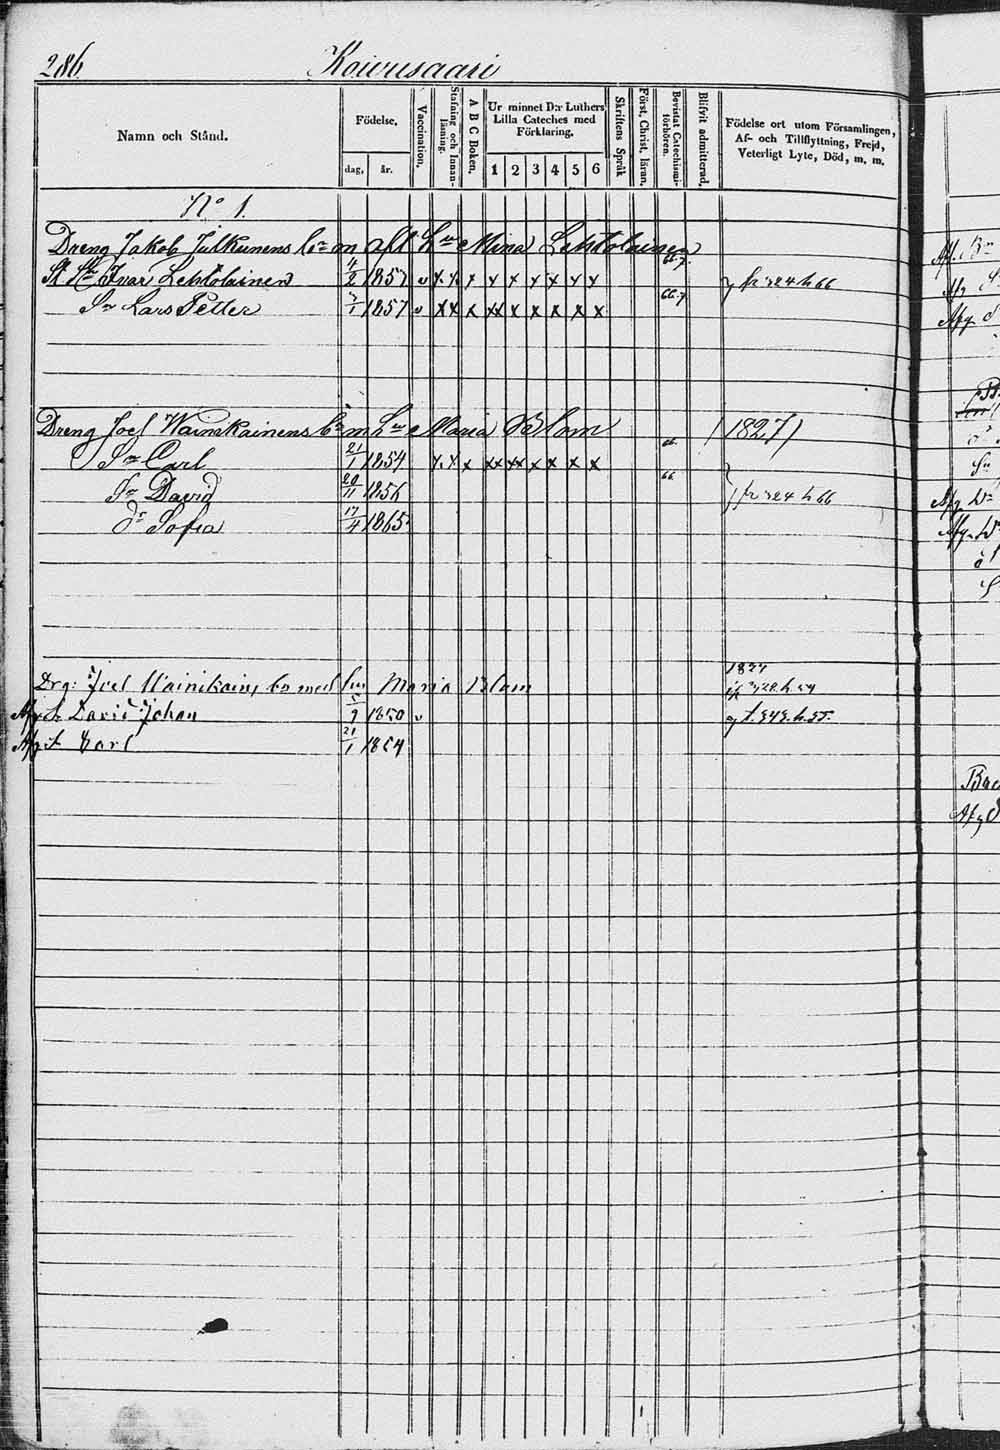 286 Koivusaari
Namn och Stånd.
Födelse,
dag, år.
Vaccination,
Stafning och Innan-läsning.
A B C Boken,
Ur minnet D:r Luthers
Lilla Cateches med
Förklaring,
1 2 3 4 5 6
Skriftens Språk
Först, Christ, läran,
Bevistat Catechismi-förhören.
Blifvit admitterad,
Födelse ort utom Församlingen,
Af- och Tillflyttning, Frejd,
Veterligt Lyte, Död, m. m.
No 1.
Dreng Jakob Julkunens br m afl hu Mina Lehtolainen
Ivar Lehtolainen 4/2 1857 v x x x x x x x x x fr 324 h 66
Sn Lars Petter 1857 v x x x xx x x x x x
Dreng Joel Wainikainens br m hu Maria Blom (1827)
Sn Carl 21/1 1854 x x x xx xx x x x x 66
Sn David 20/11 1856 66 fr 324 h 66
dr Sofia 17/4 1865
Drg: Joel Wainikains br med hu Maria Blom 1827
Afg s David Johan 5/9 1850 v
Afg s Carl 21/1 1854